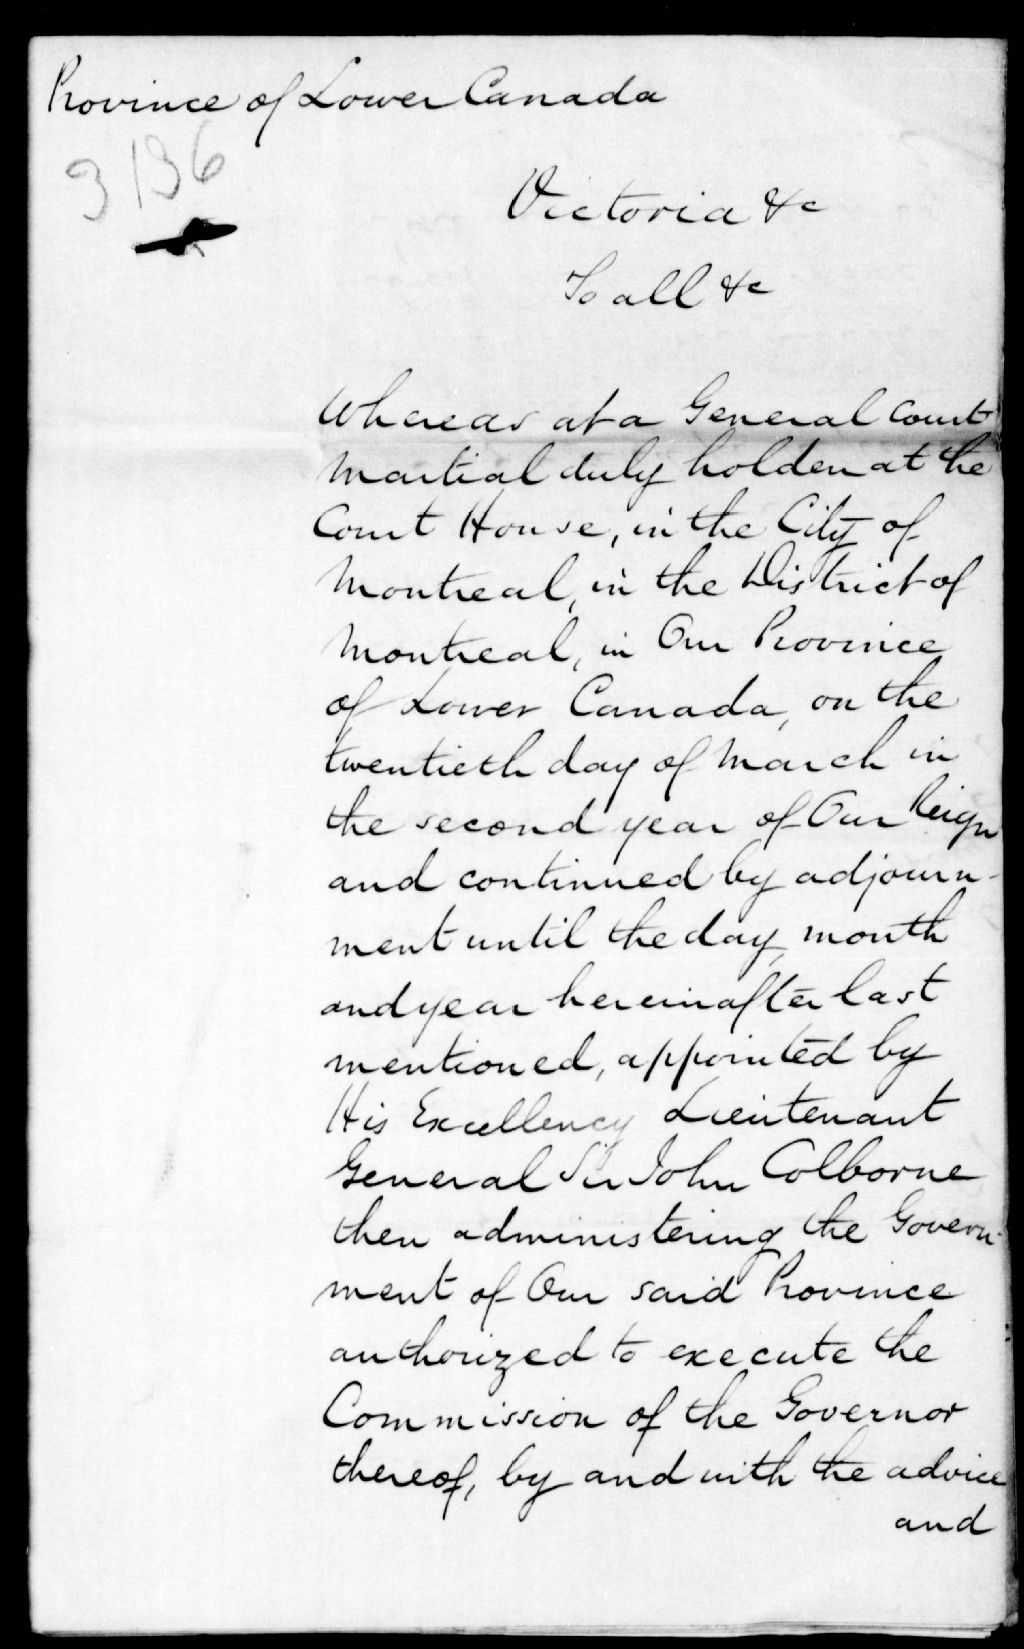 Province of Lower Canada
3136
Victoria &c
To all &c
Whereas at a General Court
Martial duly holden at the
Court House, in the City of
Montreal, in the District of
Montreal, in Our Province
of Lower Canada, on the
twentieth day of March in
the second year of Our Reign
and continued by adjourn-
ment until the day, month
and year hereinafter last
mentioned, appointed by
His Excellency Lieutenant
General Sir John Colborne
then administering the Govern-
ment of Our said Province
authorized to execute the
Commission of the Governor
thereof, by and with the advice
and